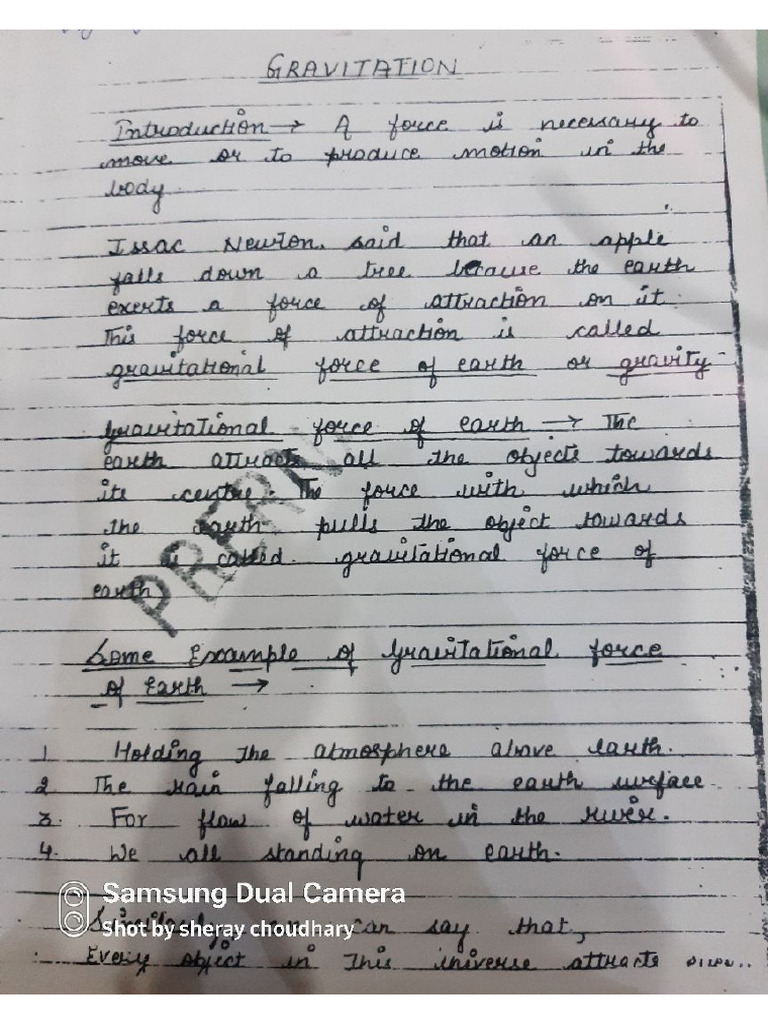 GRAVITATION
Introduction → A force is necessary to
move or to produce motion in the
body.
Issac Newton, said that an apple
falls down a tree because the earth
exerts a force of attraction on it
This force of attraction is called
gravitational force of earth or gravity
gravitational force of earth → The
earth attracts all the objects towards
its centre. The force with which
the earth pulls the object towards
it is called gravitational force of
earth
Some Example of gravitational force
of Earth →
1 Holding the atmosphere above earth.
2 The rain falling to the earth surface
3. For flow of water in the river.
4. We all standing on earth.
Samsung Dual Camera
Shot by sheray choudhary
can say that,
Every object in This universe attracts